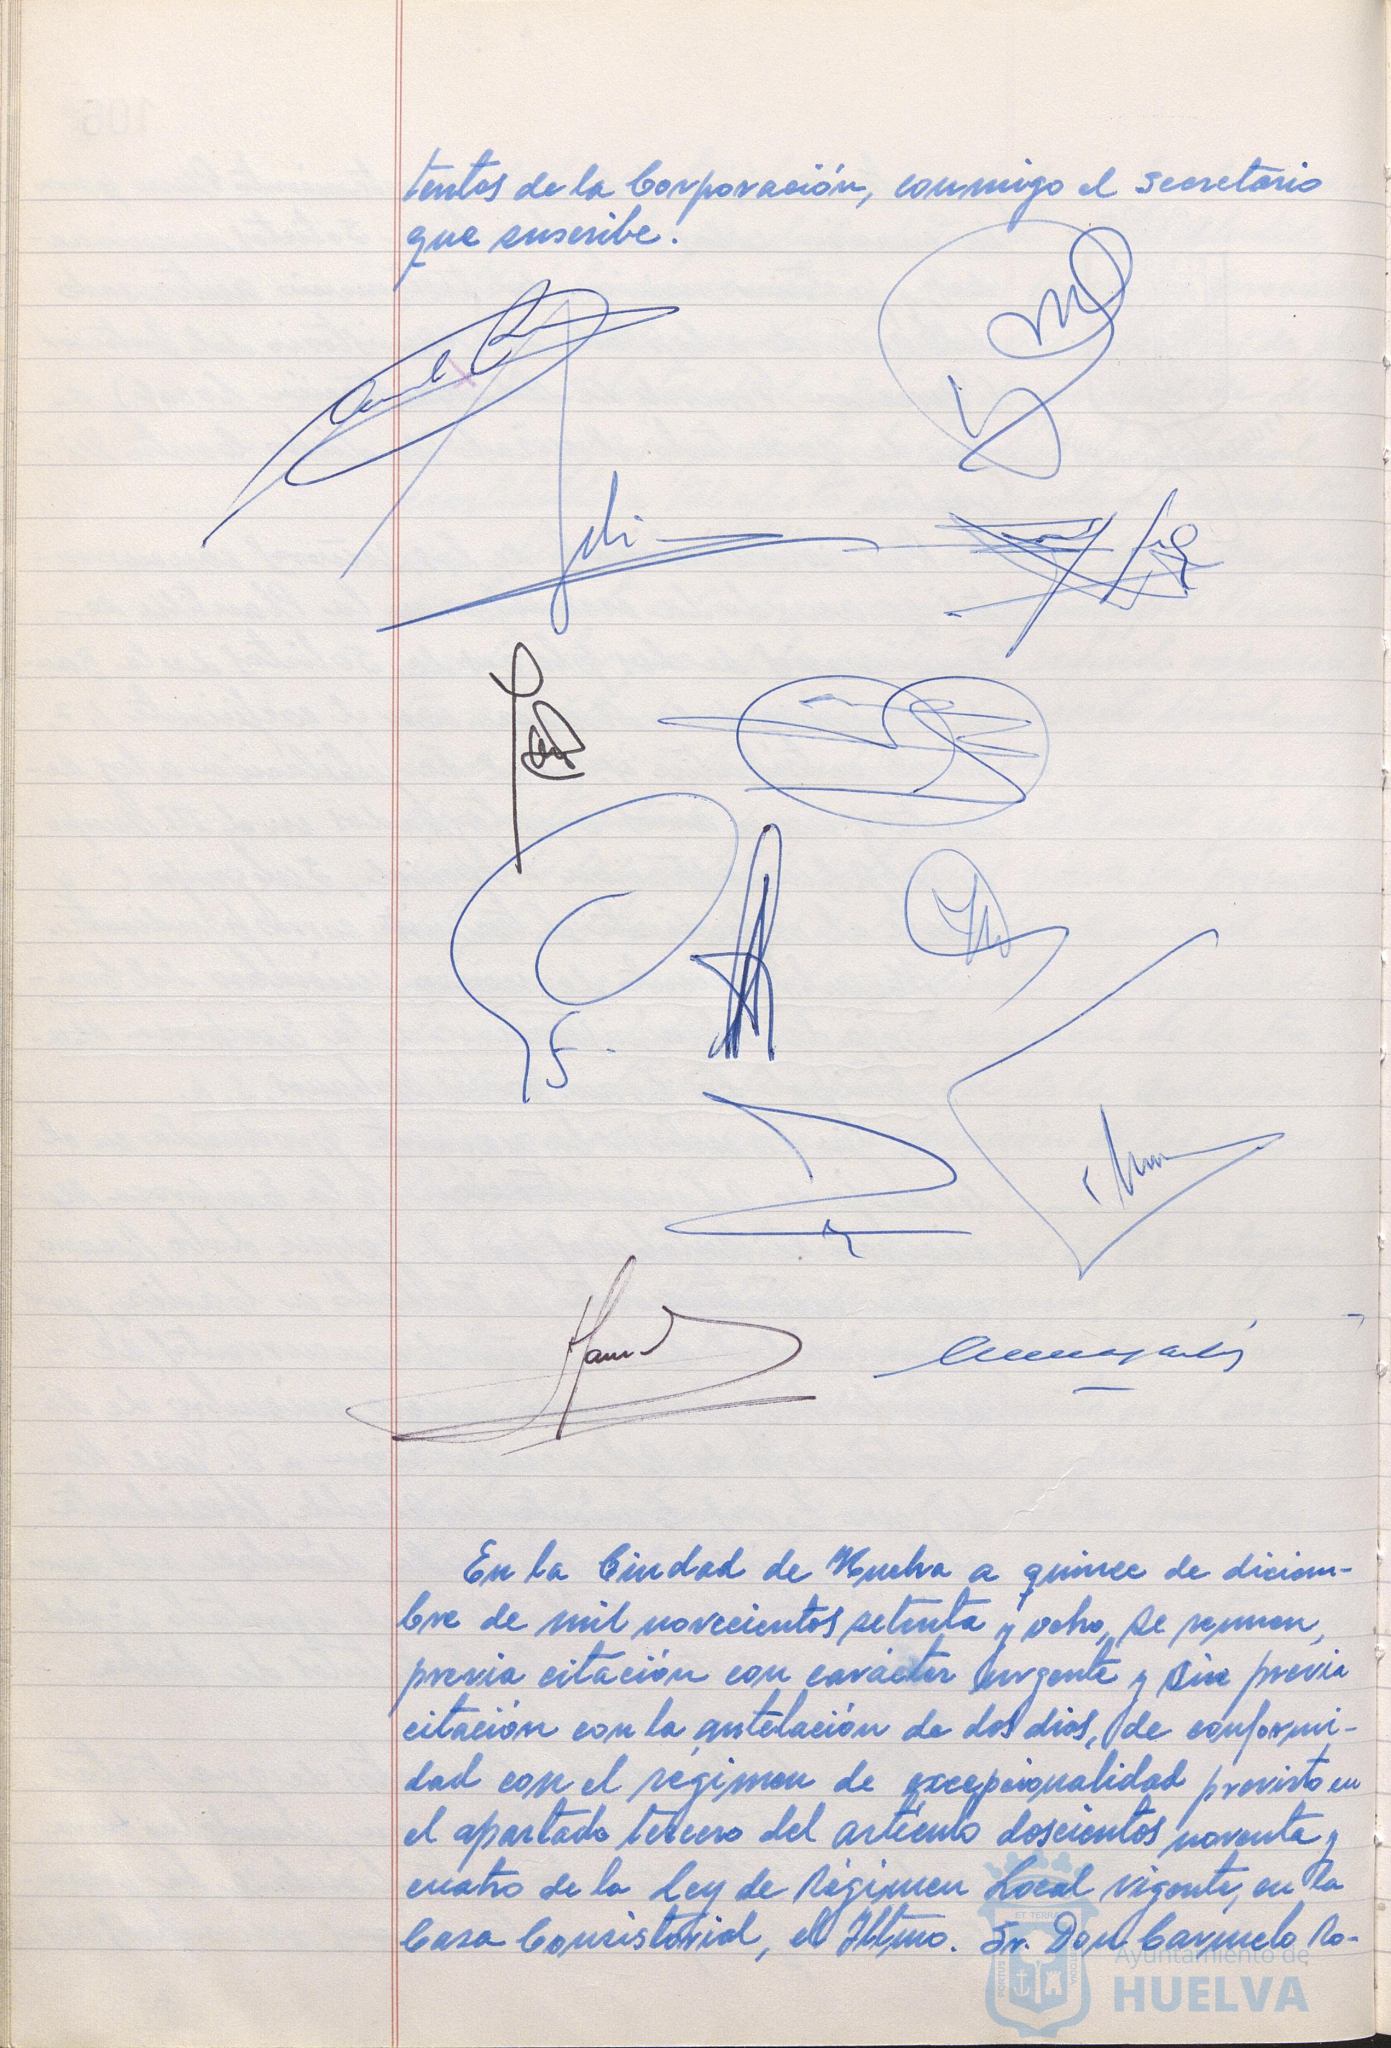 tentes de la Corporación, conmigo el secretario
que suscribe.
En la Ciudad de Huelva a quince de diciem-
bre de mil novecientos setenta y ocho, se reunen,
previa citación con carácter urgente y sin previa
citación con la antelación de dos dias, de conformi-
dad con el régimen de excepcionalidad previsto en
el apartado tercero del artículo doscientos noventa y
cuatro de la Ley de Régimen Local vigente, en la
Casa Consistorial, el Iltmo. Sr. Don Carmelo Ro-
ET TERRA
PORTUS
CUSTODIA
Ayuntamiento de
HUELVA